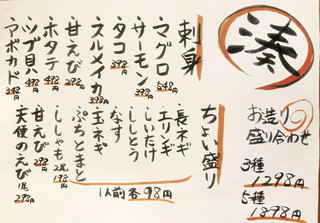 湊
お造り
盛り合わせ
3種
1298円
5種
1898円
刺身
・マグロ 548円
・サーモン 398円
・タコ 398円
・スルメイカ 398円
・甘えび 298円
・ホタテ 498円
・ツブ貝 498円
・アボカド 348円
ちょい盛り
・長ネギ
・エリンギ
・しいたけ
・ししとう
・なす
・玉ネギ
・ぷちとまと
・ししゃも 2尾 198円
・甘えび 298円
・天使のえび 1尾 298円
1人前各98円